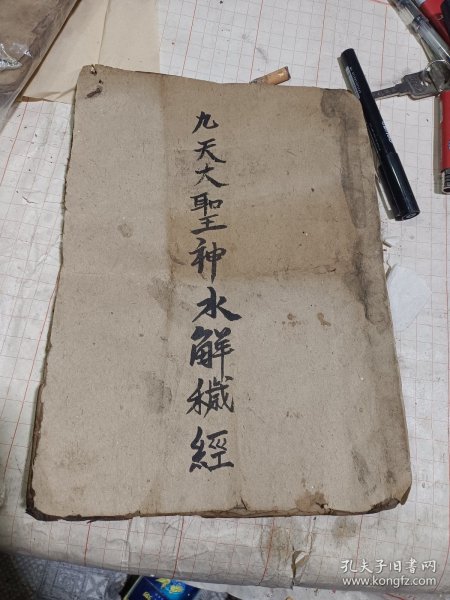 九天大聖神水解穢經
孔夫子旧书网
www.kongfz.com